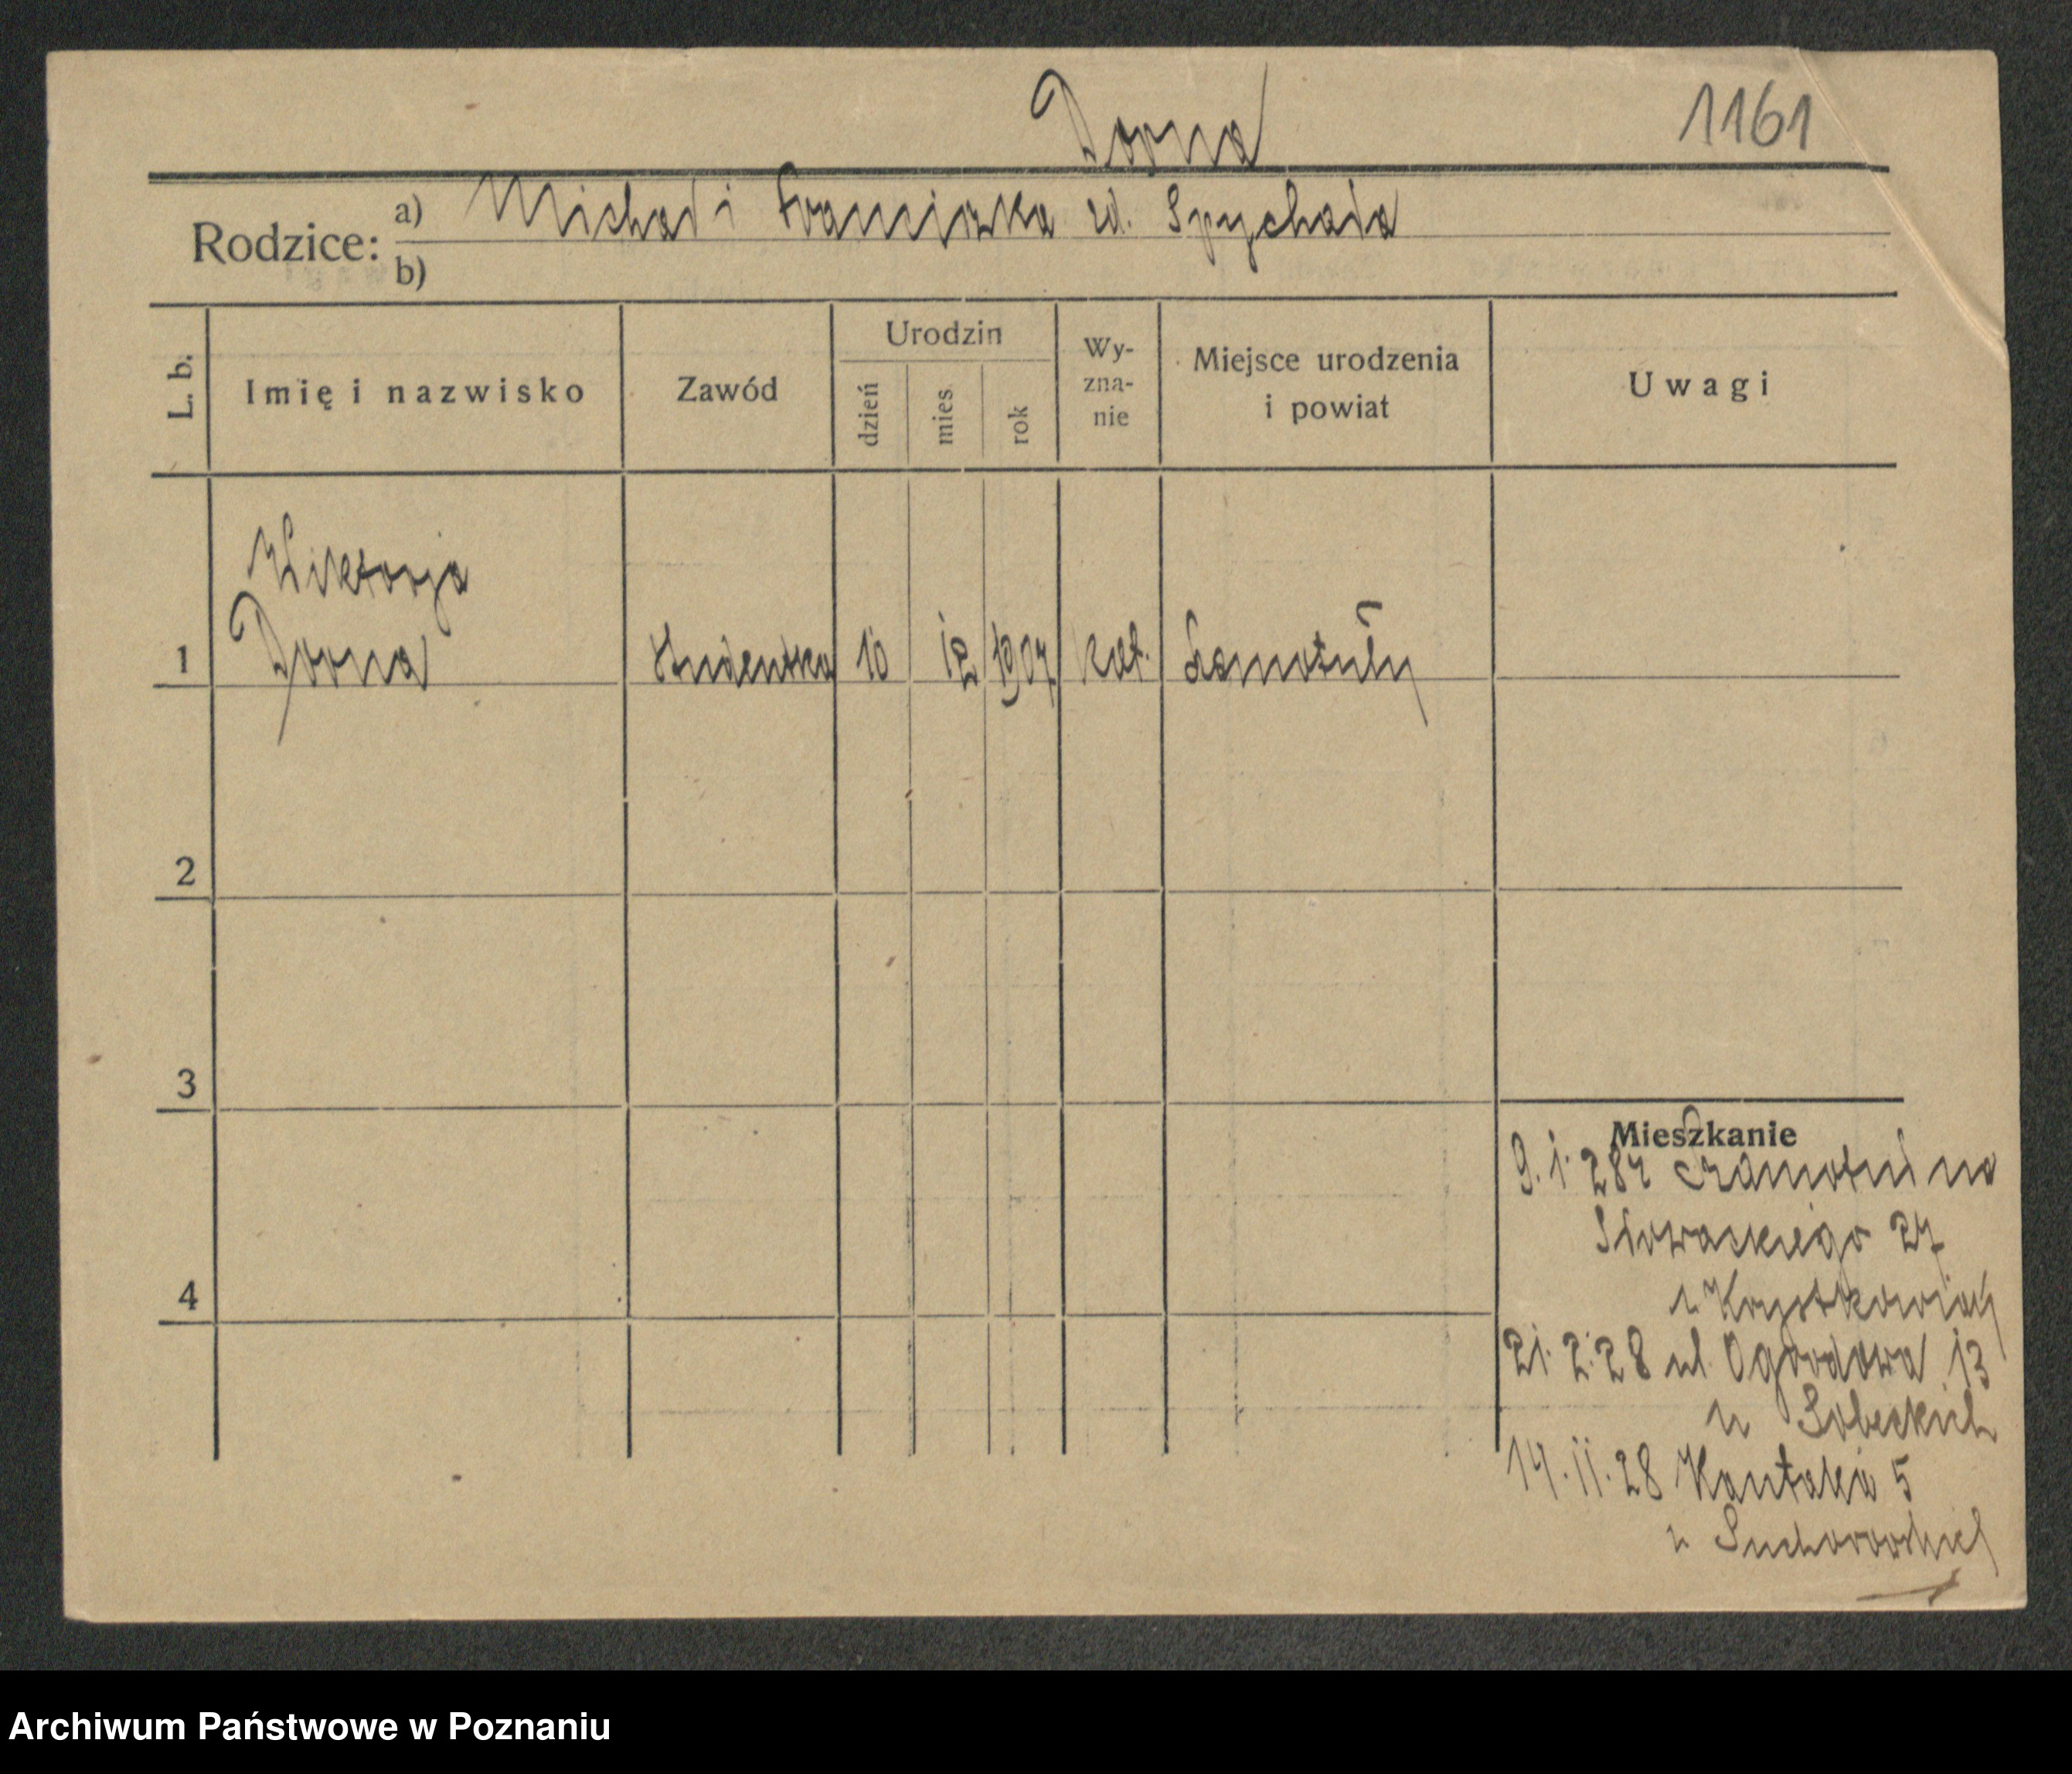 Dorna
1161
Rodzice:
a) Michał i Franciszka zd. Spychała
b)
L. b.
Imię i nazwisko
Zawód
Urodzin
dzień
mies
rok
Wy-
zna-
nie
Miejsce urodzenia
i powiat
Uwagi
Wiktorja
1 Dorna studentka 10 12 1907 kat. Szamotuły
2
3
4
Mieszkanie
9.1.28 z Szamotuł na
Słowackiego 27
u
21.2.28 ul. Ogrodowa 13
u Sobeckich
14.11.28 Kantaka 5
u
Archiwum Państwowe w Poznaniu